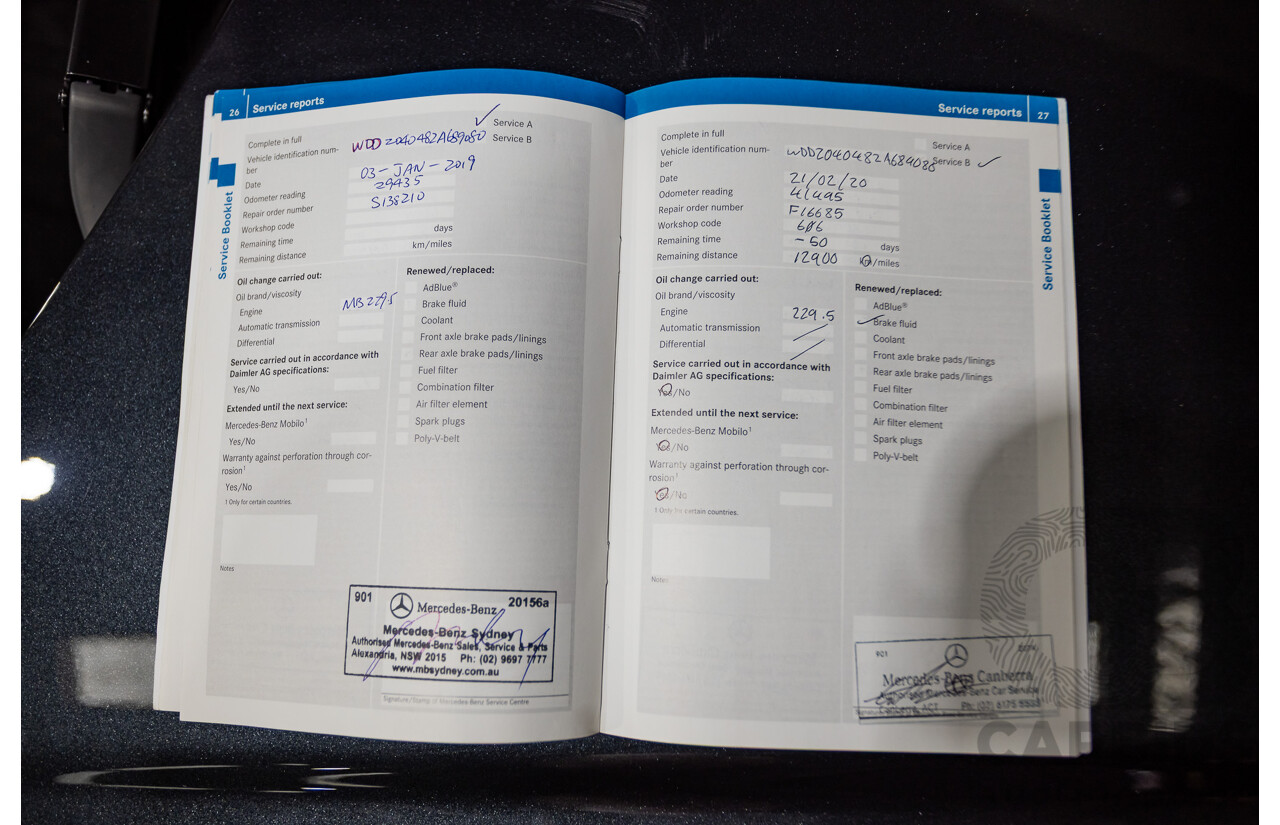 26 Service reports
Service A
Complete in full
Service B
Vehicle identification num-
ber
WDD2040482A689080
Date 03-JAN-2019
Odometer reading 29435
Repair order number S138210
Workshop code
Remaining time days
Remaining distance km/miles
Oil change carried out:
Oil brand/viscosity
Engine MB 229.5
Automatic transmission
Differential
Service carried out in accordance with
Daimler AG specifications:
Yes/No
Extended until the next service:
Mercedes-Benz Mobilo1
Yes/No
Warranty against perforation through cor-
rosion1
Yes/No
1 Only for certain countries.
Notes
Renewed/replaced:
AdBlue®
Brake fluid
Coolant
Front axle brake pads/linings
Rear axle brake pads/linings
Fuel filter
Combination filter
Air filter element
Spark plugs
Poly-V-belt
901 Mercedes-Benz 20156a
Mercedes-Benz Sydney
Authorised Mercedes-Benz Sales, Service & Parts
Alexandria, NSW 2015 Ph: (02) 9697 7777
www.mbsydney.com.au
Signature/Stamp of Mercedes-Benz Service Centre
Service Booklet
Service reports 27
Complete in full
Service A
Vehicle identification num-
ber
WDD2040482A684088
Service B
Date 21/02/20
Odometer reading 41495
Repair order number F16685
Workshop code 606
Remaining time -50 days
Remaining distance 12900 km/miles
Oil change carried out:
Oil brand/viscosity
Engine 229.5
Automatic transmission
Differential
Service carried out in accordance with
Daimler AG specifications:
Yes/No
Extended until the next service:
Mercedes-Benz Mobilo1
Yes/No
Warranty against perforation through cor-
rosion1
Yes/No
1 Only for certain countries.
Notes
Renewed/replaced:
AdBlue®
Brake fluid
Coolant
Front axle brake pads/linings
Rear axle brake pads/linings
Fuel filter
Combination filter
Air filter element
Spark plugs
Poly-V-belt
901
Mercedes-Benz Canberra
Authorised Mercedes-Benz Car Service
Canberra, ACT
Service Booklet